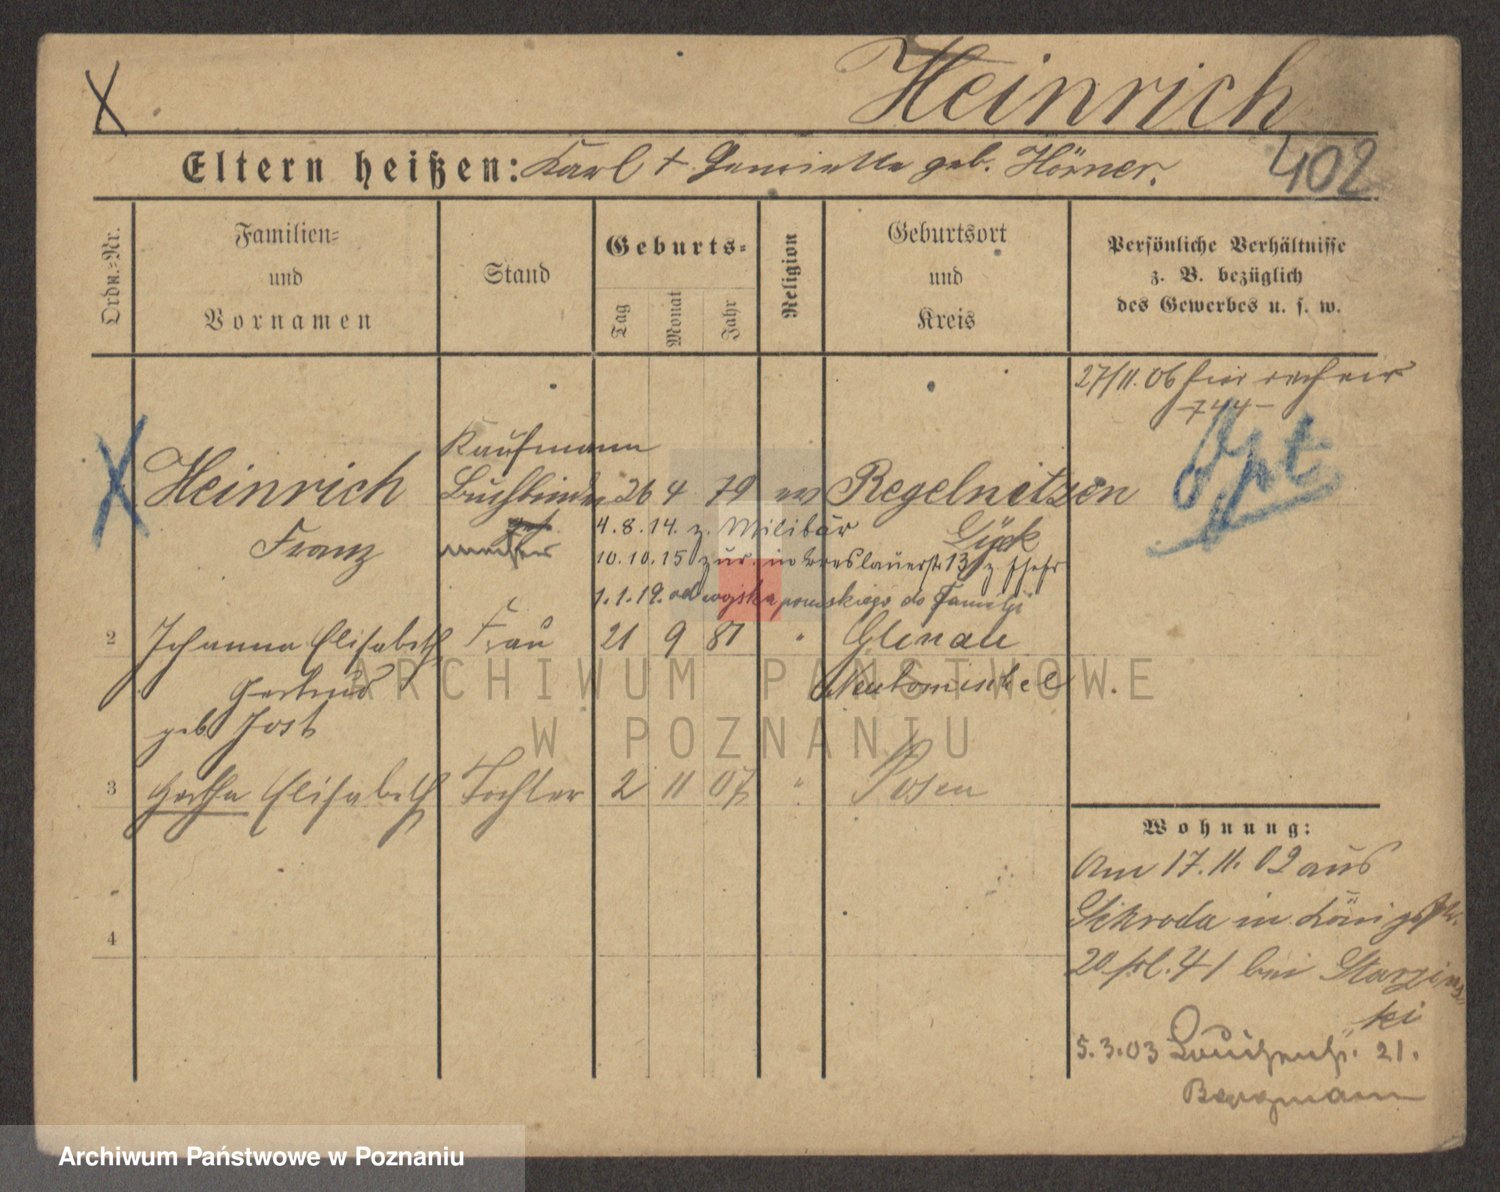 Heinrich
Eltern heißen: Karl + Henriette geb. Hörner.
402
Ordn.-Nr.
Familien-
und
Vornamen
Stand
Geburts-
Tag
Monat
Jahr
Religion
Geburtsort
und
Kreis
Persönliche Verhältnisse
z. B. bezüglich
des Gewerbes u. s. w.
27/11.06
-744-
Opt
Kaufmann
Heinrich Buchbinder 26 4 79 ev Regelnitzen
Franz Lyck
4.8.14. z. Militär
10.10.15 zur. in Breslauerstr 13
1.1.19. od wojska do Familji
2 Johanna Elisabeth Frau 21 9 81 " Glinau
Gertrud Neutomischel
geb Jost
3 Hertha Elisabeth Tochter 2 11 07 " Posen
4
Wohnung:
Am 17.11.02 aus
Schroda in Königspl.
20 bei Starzins
ki
5.3.03 Louisenstr. 21.
Bergmann
ARCHIWUM PAŃSTWOWE
W POZNANIU
Archiwum Państwowe w Poznaniu